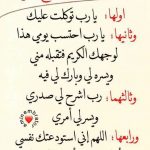 اولها؛ يا رب توكلت عليك
وثانيها؛ يا رب احتسب يومي هذا
لوجهك الكريم فتقبله مني
ويسره لي وبارك لي فيه
وثالثهما؛ رب اشرح لي صدري
ويسر لي أمري
ورابعها؛ اللهم إني استودعتك نفسي